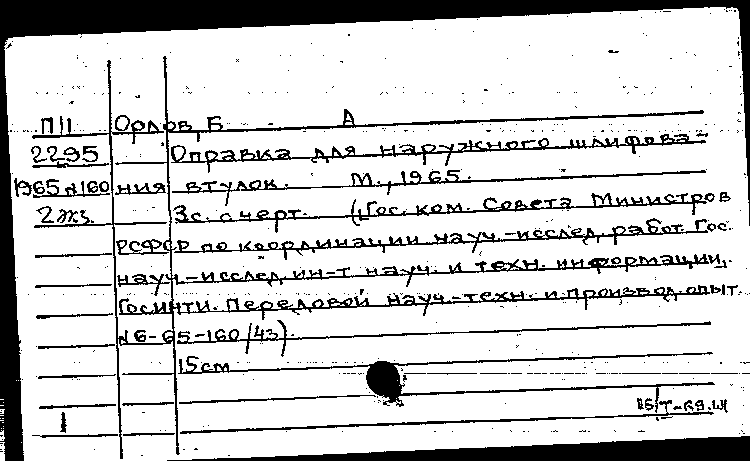 П11 Орлов, Б А
2295 Оправка для наружного шлифова-
1965 №160 ния втулок. М., 1965.
2 экз. 3 с. с черт. (Гос. ком. Совета Министров
РСФСР по координации науч.-исслед. работ. Гос.
науч.-исслед. ин-т науч. и техн. информации.
Госинти. Передовой науч.-техн. и производ. опыт.
№ 6-65-160/43).
15 см